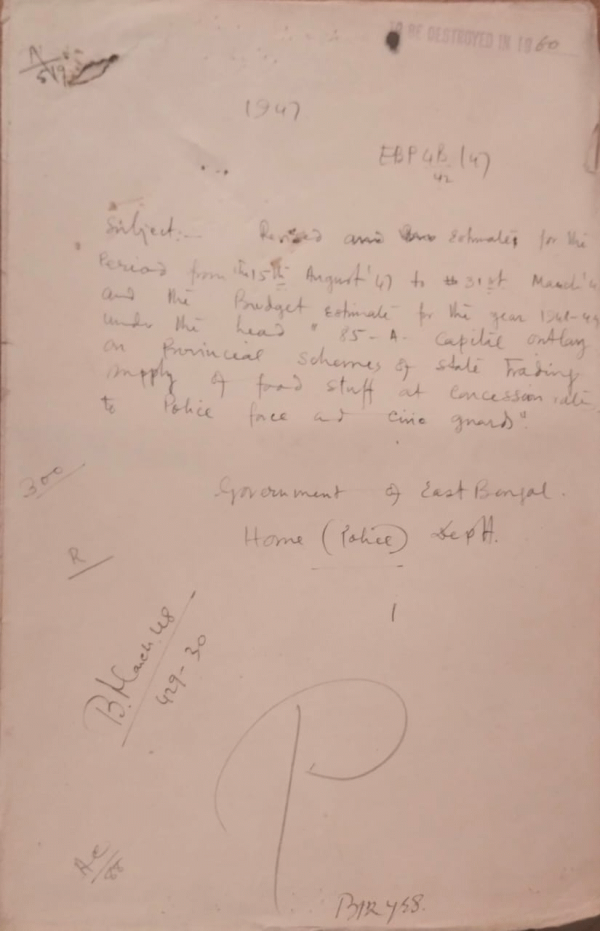 TO BE DESTROYED IN 1960
A
519
1947
EBP 4B (47)
42
Subject:- Revised and Estimates for the
Period from the 15th August '47 to 31st March '4
and the Budget Estimate for the year 1948-49
under the head " 85-A. Capital outlay
on Provincial Schemes of State Trading
supply of food stuff at Concession rate
to Police force and Civic guards".
300
Government of East Bengal.
Home (Police) Deptt.
R
1
B. March 48
429-30
P